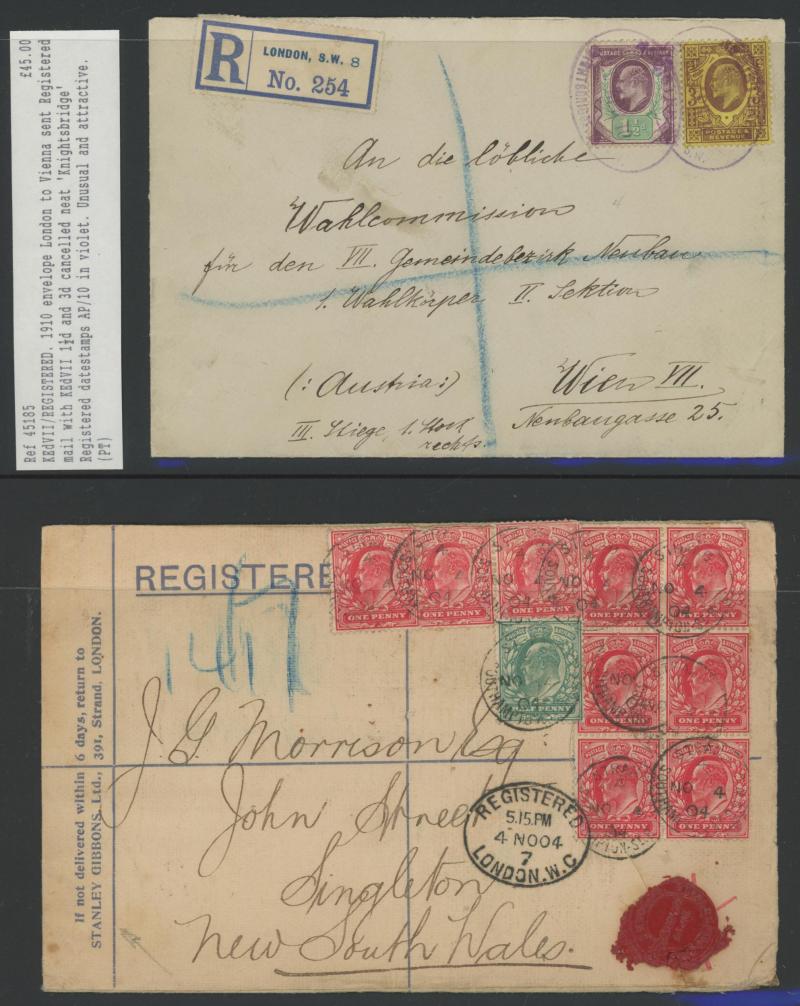 Ref 45185 £45.00
KEdVII/REGISTERED. 1910 envelope London to Vienna sent Registered
mail with KEdVII 1½d and 3d cancelled neat 'Knightsbridge'
Registered datestamps AP/10 in violet. Unusual and attractive.
(PT)
R
LONDON, S.W. 8
No. 254
POSTAGE & REVENUE
1½d
3d
POSTAGE &
REVENUE
S.W.
An die löbliche
Wahlcommission
für den VII. Gemeindebezirk Neubau
1. Wahlkörper II. Sektion
(: Austria :) Wien VII.
III. Stiege, 1. Stock Neubaugasse 25.
rechts.
REGISTERE
ONE PENNY
ONE PENNY
ONE PENNY
ONE PENNY
ONE PENNY
HALF PENNY
ONE PENNY
ONE PENNY
ONE PENNY
ONE PENNY
NO 4
04
If not delivered within 6 days, return to
STANLEY GIBBONS, Ltd., 391, Strand, LONDON.
J. G. Morrison Esq
John Street
Singleton
New South Wales.
REGISTERED
5.15.PM
4 NO 04
7
LONDON.W.C